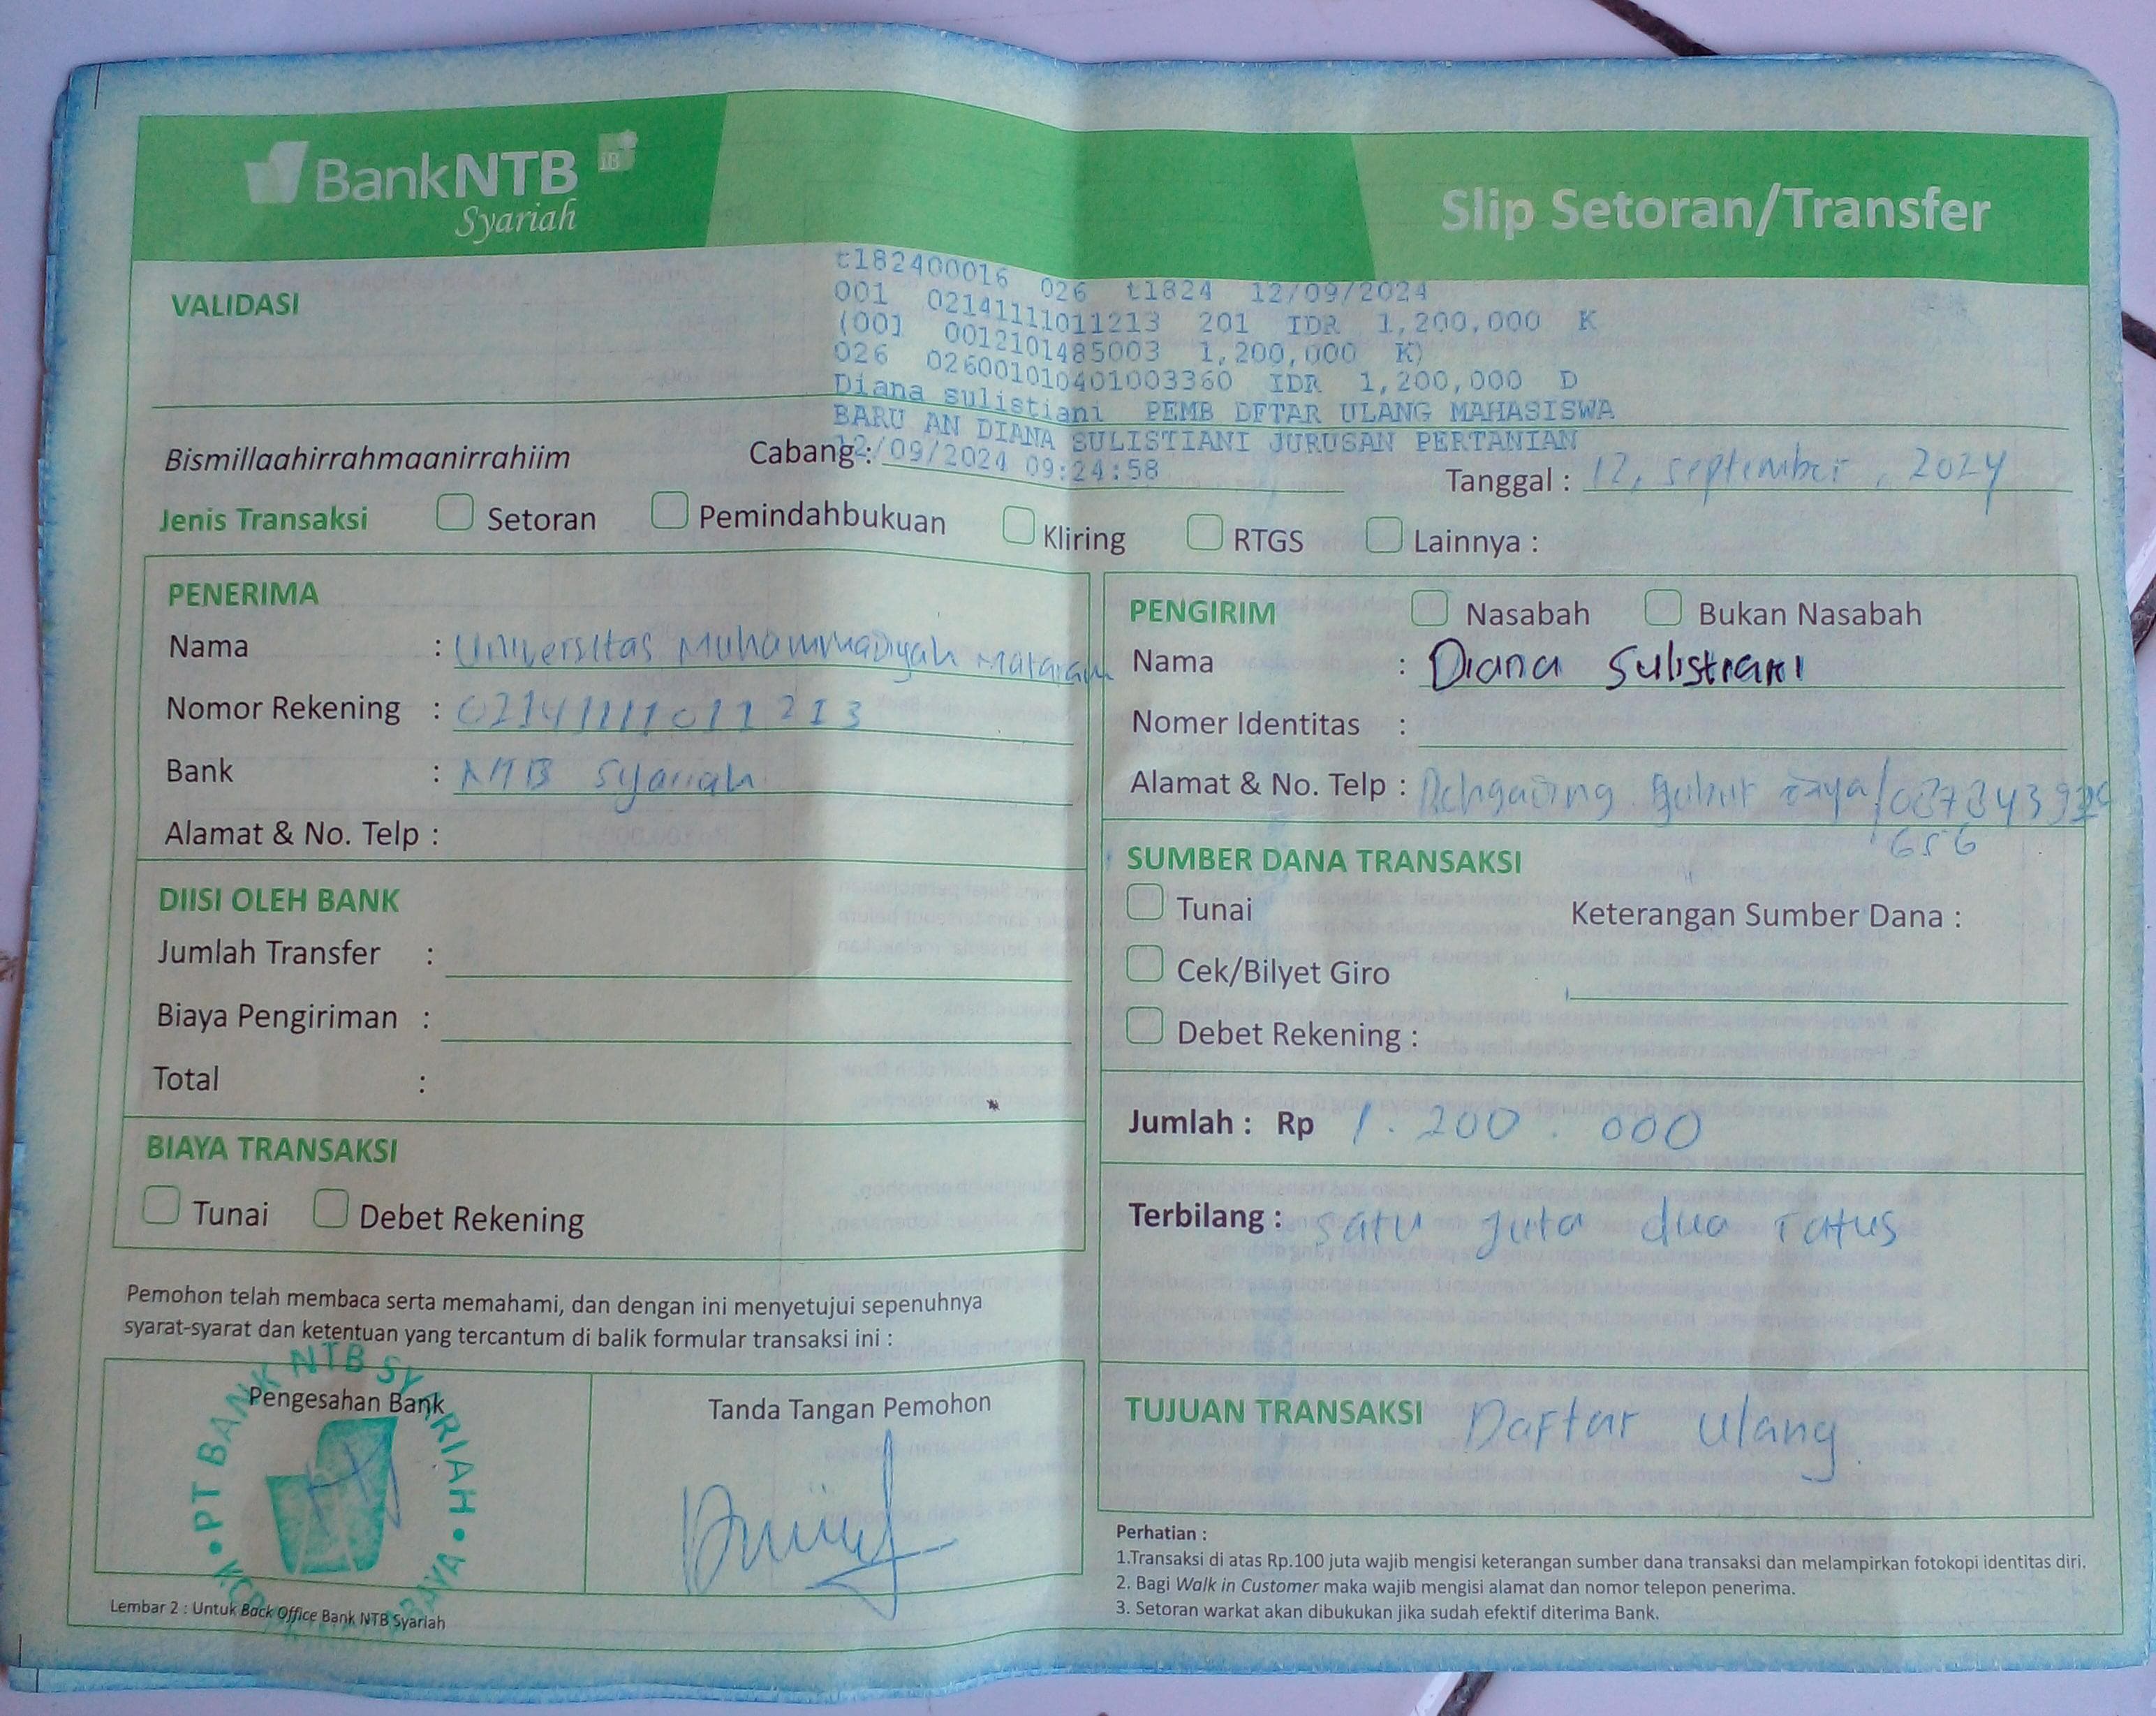 BankNTB iB
Syariah
Slip Setoran/Transfer
VALIDASI
t182400016 026 t1824 12/09/2024
001 02141111011213 201 IDR 1,200,000 K
(001 0012101485003 1,200,000 K)
026 026001010401003360 IDR 1,200,000 D
Diana sulistiani PEMB DFTAR ULANG MAHASISWA
BARU AN DIANA SULISTIANI JURUSAN PERTANIAN
12/09/2024 09:24:58
Bismillaahirrahmaanirrahiim
Cabang :
Tanggal : 12, september, 2024
Jenis Transaksi Setoran Pemindahbukuan Kliring RTGS Lainnya :
PENERIMA
Nama : Universitas Muhammadiyah Mataram
Nomor Rekening : 02141111011213
Bank : NTB Syariah
Alamat & No. Telp :
DIISI OLEH BANK
Jumlah Transfer :
Biaya Pengiriman :
Total :
BIAYA TRANSAKSI
Tunai Debet Rekening
Pemohon telah membaca serta memahami, dan dengan ini menyetujui sepenuhnya
syarat-syarat dan ketentuan yang tercantum di balik formular transaksi ini :
Pengesahan Bank
PT BANK NTB SYARIAH
Tanda Tangan Pemohon
Lembar 2 : Untuk Back Office Bank NTB Syariah
PENGIRIM Nasabah Bukan Nasabah
Nama : Diana Sulistiani
Nomer Identitas :
Alamat & No. Telp :
656
SUMBER DANA TRANSAKSI
Tunai
Keterangan Sumber Dana :
Cek/Bilyet Giro
Debet Rekening :
Jumlah : Rp 1.200.000
Terbilang : satu juta dua ratus
TUJUAN TRANSAKSI Daftar Ulang
Perhatian :
1.Transaksi di atas Rp.100 juta wajib mengisi keterangan sumber dana transaksi dan melampirkan fotokopi identitas diri.
2. Bagi Walk in Customer maka wajib mengisi alamat dan nomor telepon penerima.
3. Setoran warkat akan dibukukan jika sudah efektif diterima Bank.